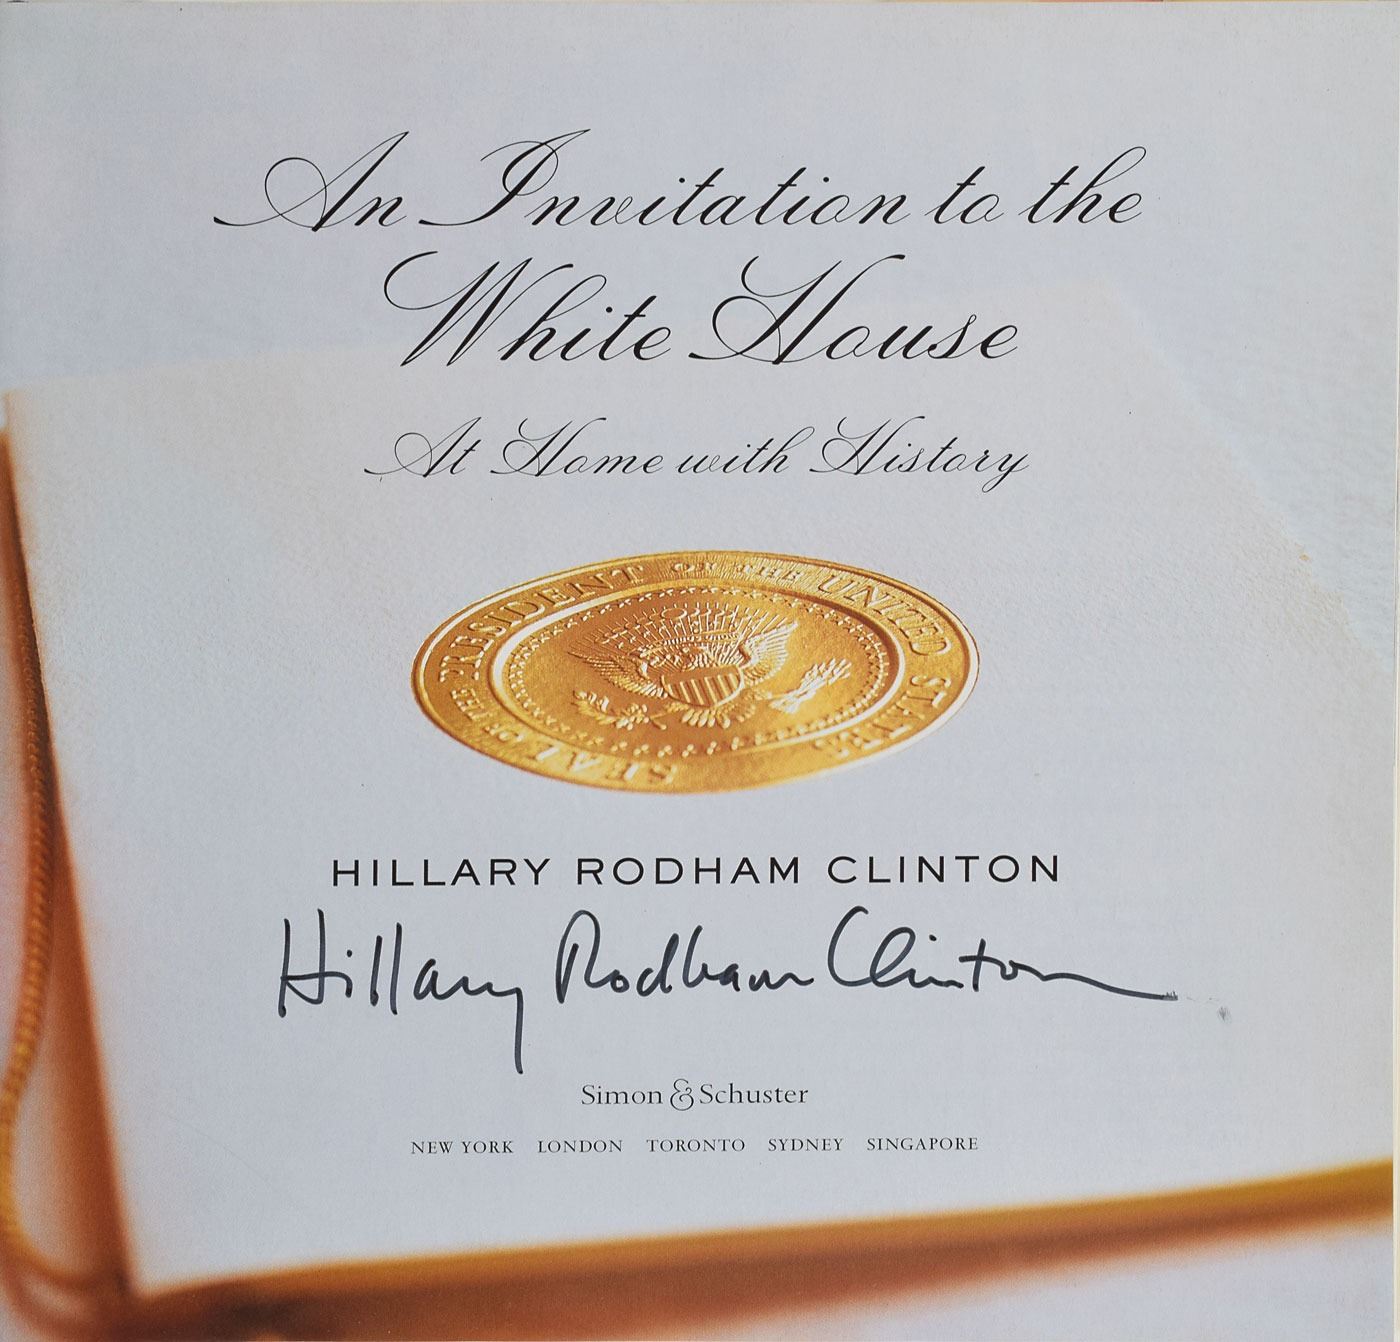 An Invitation to the
White House
At Home with History
SEAL OF THE PRESIDENT OF THE UNITED STATES
HILLARY RODHAM CLINTON
Hillary Rodham Clinton
Simon & Schuster
NEW YORK LONDON TORONTO SYDNEY SINGAPORE